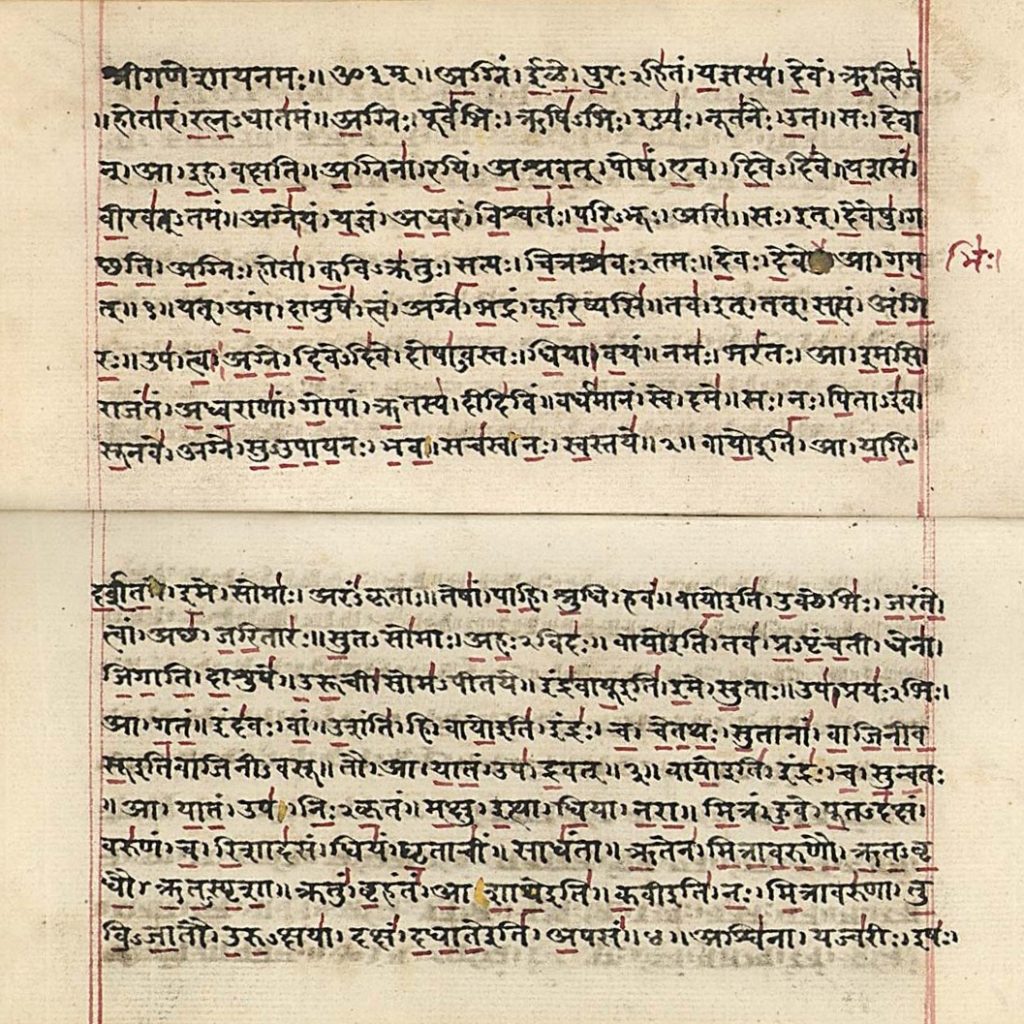 श्रीगणेशायनमः॥ ॐ३म् ॥ अ॒ग्निं । ई॒ळे॒ । पु॒रः२हि॑तं । य॒ज्ञस्य॑ । दे॒वं । ऋ॒त्विजं॑
॥ होता॑रं । र॒त्न॒ऽधात॑मं ॥ अ॒ग्निः । पूर्वे॑भिः । ऋषि॑ऽभिः । ईड्यः॑ । नूत॑नैः । उ॒त ॥ सः । दे॒वा
न् । आ । इ॒ह । व॒क्ष॒ति॒ ॥ अ॒ग्निना॑ । र॒यिं । अ॒श्न॒व॒त् । पोषं॑ । ए॒व । दि॒वेऽदि॑वे ॥ य॒शसं॑
वी॒रव॑त्ऽतमं ॥ अग्ने॑ । यं । य॒ज्ञं । अ॒ध्व॒रं । वि॒श्वतः॑ । प॒रि॒ऽभूः । असि॑ ॥ सः । इत् । दे॒वेषु॑ । ग॒
च्छ॒ति॒ । अ॒ग्निः । होता॑ । क॒विऽक्र॑तुः । स॒त्यः । चि॒त्रश्र॑वः२तमः ॥ दे॒वः । दे॒वे । आ । ग॒म॒
भिः॑ ।
त् ॥ १ ॥ यत् । अं॒ग । दा॒शुषे॑ । त्वं । अग्ने॑ । भ॒द्रं । क॒रि॒ष्यसि॑ ॥ तव॑ । इत् । तत् । स॒त्यं । अं॒गि॒
रः॒ ॥ उप॑ । त्वा॒ । अ॒ग्ने॒ । दि॒वेऽदि॑वे । दोषा॑ऽवस्तः । धि॒या । व॒यं ॥ नमः॑ । भरं॑तः । आ । इ॒म॒सि॒
राजं॑तं । अ॒ध्व॒राणां॑ । गो॒पां । ऋ॒तस्य॑ । दीदि॑विं ॥ वर्ध॑मानं । स्वे । दमे॑ ॥ सः । नः॒ । पि॒ताऽइ॑व
सू॒नवे॑ । अग्ने॑ । सु॒ऽउ॒पा॒य॒नः । भ॒व॒ । सच॑स्व । नः॒ । स्व॒स्तये॑ ॥ २ ॥ वायो॒इति॑ । आ । या॒हि॒ ।
द॒र्श॒त॒ । इ॒मे । सोमाः॑ । अरं॑ऽकृताः ॥ तेषां॑ । पा॒हि॒ । श्रु॒धि । हवं॑ ॥ वायो॒इति॑ । उ॒क्थेभिः॑ । ज॒रं॒ते॒
त्वां । अच्छ॑ । ज॒रि॒तारः॑ ॥ सु॒तऽसो॑माः । अ॒हः॒२विदः॑ ॥ वायो॒इति॑ । तव॑ । प्र॒ऽपृं॒च॒ती । धेना॑ ।
जि॒गा॒ति॒ । दा॒शुषे॑ ॥ उ॒रू॒ची । सोम॑ऽपीतये ॥ इंद्र॑वायू॒इति॑ । इ॒मे । सु॒ताः ॥ उप॑ । प्रयः॑२भिः ।
आ । ग॒तं॒ ॥ इंद॑वः । वां॒ । उ॒शंति॑ । हि । वायो॒इति॑ । इंद्रः॑ । च॒ । चे॒त॒थः॒ । सु॒तानां॑ । वा॒जि॒नी॒व॒
सू॒इति॑वाजिनीऽवसू ॥ तौ । आ । या॒तं॒ । उप॑ । द्र॒वत् ॥ ३ ॥ वायो॒इति॑ । इंद्रः॑ । च॒ । सु॒न्व॒तः
॥ आ । या॒तं॒ । उप॑ । निः॒२कृ॒तं ॥ म॒क्षु । इ॒त्था । धि॒या । न॒रा॒ ॥ मि॒त्रं । हु॒वे॒ । पू॒तऽद॑क्षं
वरु॑णं । च॒ । रि॒शाद॑सं । धियं॑ । घृ॒ताचीं॑ । साधं॑ता ॥ ऋ॒तेन॑ । मि॒त्रा॒व॒रु॒णौ॒ । ऋ॒त॒ऽवृ॒
धौ॒ । ऋ॒त॒ऽस्पृ॒शा॒ ॥ क्रतुं॑ । बृ॒हंतं॑ । आ॒शा॒थे॒इति॑ ॥ क॒वीइति॑ । नः॒ । मि॒त्रावरु॑णा । तु॒
वि॒ऽजा॒तौ । उ॒रु॒ऽक्षया॑ । दक्षं॑ । द॒धा॒ते॒इति॑ । अ॒पसं॑ ॥ ४ ॥ अश्वि॑ना । यज्व॑रीः । इषः॑ ।